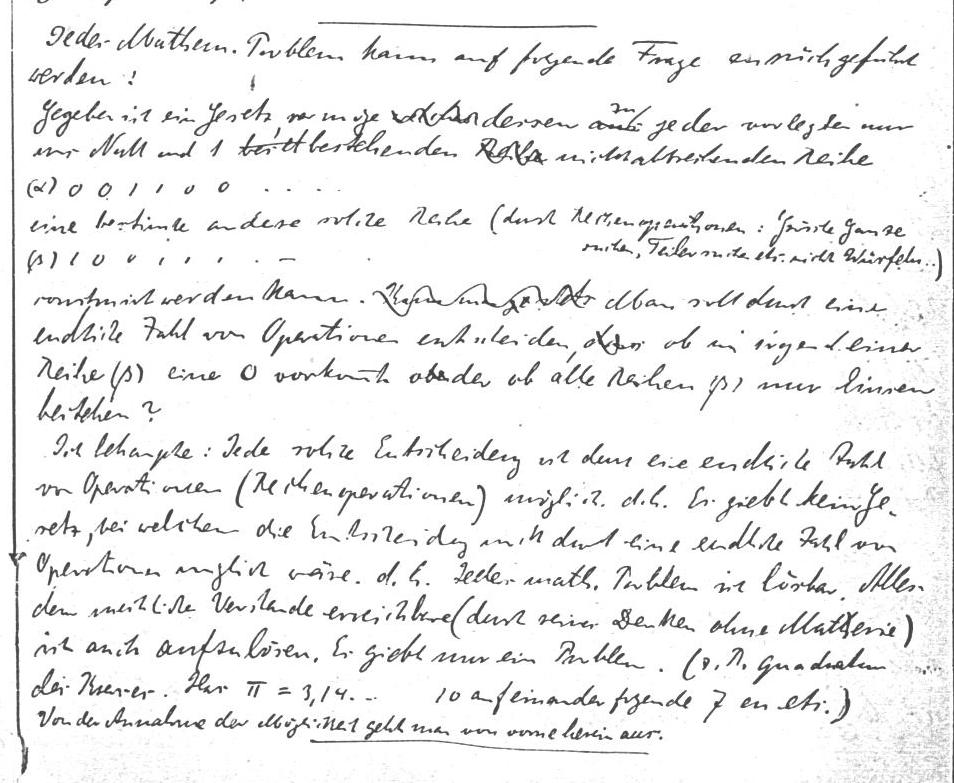 Jedes Mathem. Problem kann auf folgende Frage zurückgeführt
werden:
Gegeben ist ein Gesetz vermöge dessen zu jeder vorlegten nur
aus Null und 1 bestehenden nichtabbrechenden Reihe
(α) 0 0 1 1 0 0 . . . .
eine bestimmte andere solche Reihe (durch Rechenoperationen: Grösste Ganze
suchen, Teiler suchen etc. nicht Würfeln..)
(β) 1 0 0 1 1 1 . –
construirt werden kann. Man soll durch eine
endliche Zahl von Operationen entscheiden, ob in irgend einer
Reihe (β) eine 0 vorkommt oder ob alle Reihen (β) nur Einsen
bestehen?
Ich behaupte: Jede solche Entscheidung ist durch eine endliche Zahl
von Operationen (Rechenoperationen) möglich. d.h. Es giebt kein Ge-
setz, bei welchem die Entscheidung nicht durch eine endliche Zahl von
Operationen möglich wäre. d.h. Jedes math. Problem ist lösbar. Alles
dem menschliche Verstande erreichbare (durch seines Denken ohne Matherie)
ist auch aufzulösen. Es giebt nur ein Problem. (z.B. Quadratur
des Kreises. Hat π = 3,14.. 10 aufeinander folgende 7 en etc.)
Von der Annahme der Möglichkeit geht man von vorne herein aus.